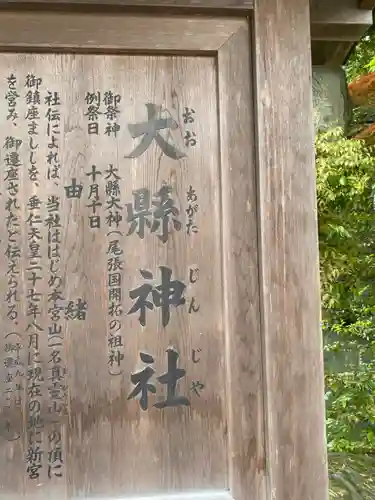 大縣神社
おお あがた じんじゃ
御祭神 大縣大神(尾張国開拓の祖神)
例祭日 十月十日
由緒
社伝によれば、当社ははじめ本宮山(一名真霊山)の頂に
御鎮座ましましを、垂仁天皇二十七年八月に現在の地に新宮
を営み、御遷座されたと伝えられる。